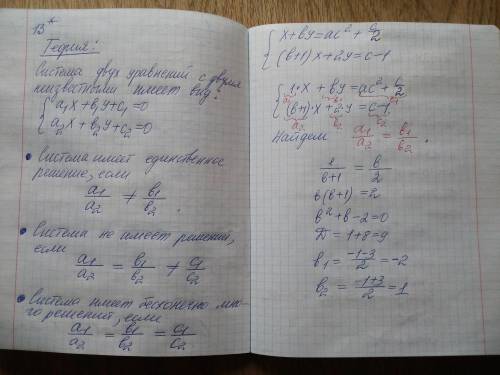 13*
Теория:
Система двух уравнений с двумя
неизвестными имеет вид:
{ a₁x + b₁y + c₁ = 0
{ a₂x + b₂y + c₂ = 0
• Система имеет единственное
решение, если
a₁/a₂ ≠ b₁/b₂.
• Система не имеет решений,
если
a₁/a₂ = b₁/b₂ ≠ c₁/c₂
• Система имеет бесконечно мно-
го решений, если
a₁/a₂ = b₁/b₂ = c₁/c₂
{ x + by = ac² + c/2
{ (b+1)x + 2y = c-1
{ 1·x + by = ac² + c/2
a₁ b₁ c₁
{ (b+1)·x + 2·y = c-1
a₂ b₂ c₂
Найдем a₁/a₂ = b₁/b₂
1/(b+1) = b/2
b(b+1) = 2
b² + b - 2 = 0
D = 1 + 8 = 9
b₁ = (-1-3)/2 = -2
b₂ = (-1+3)/2 = 1